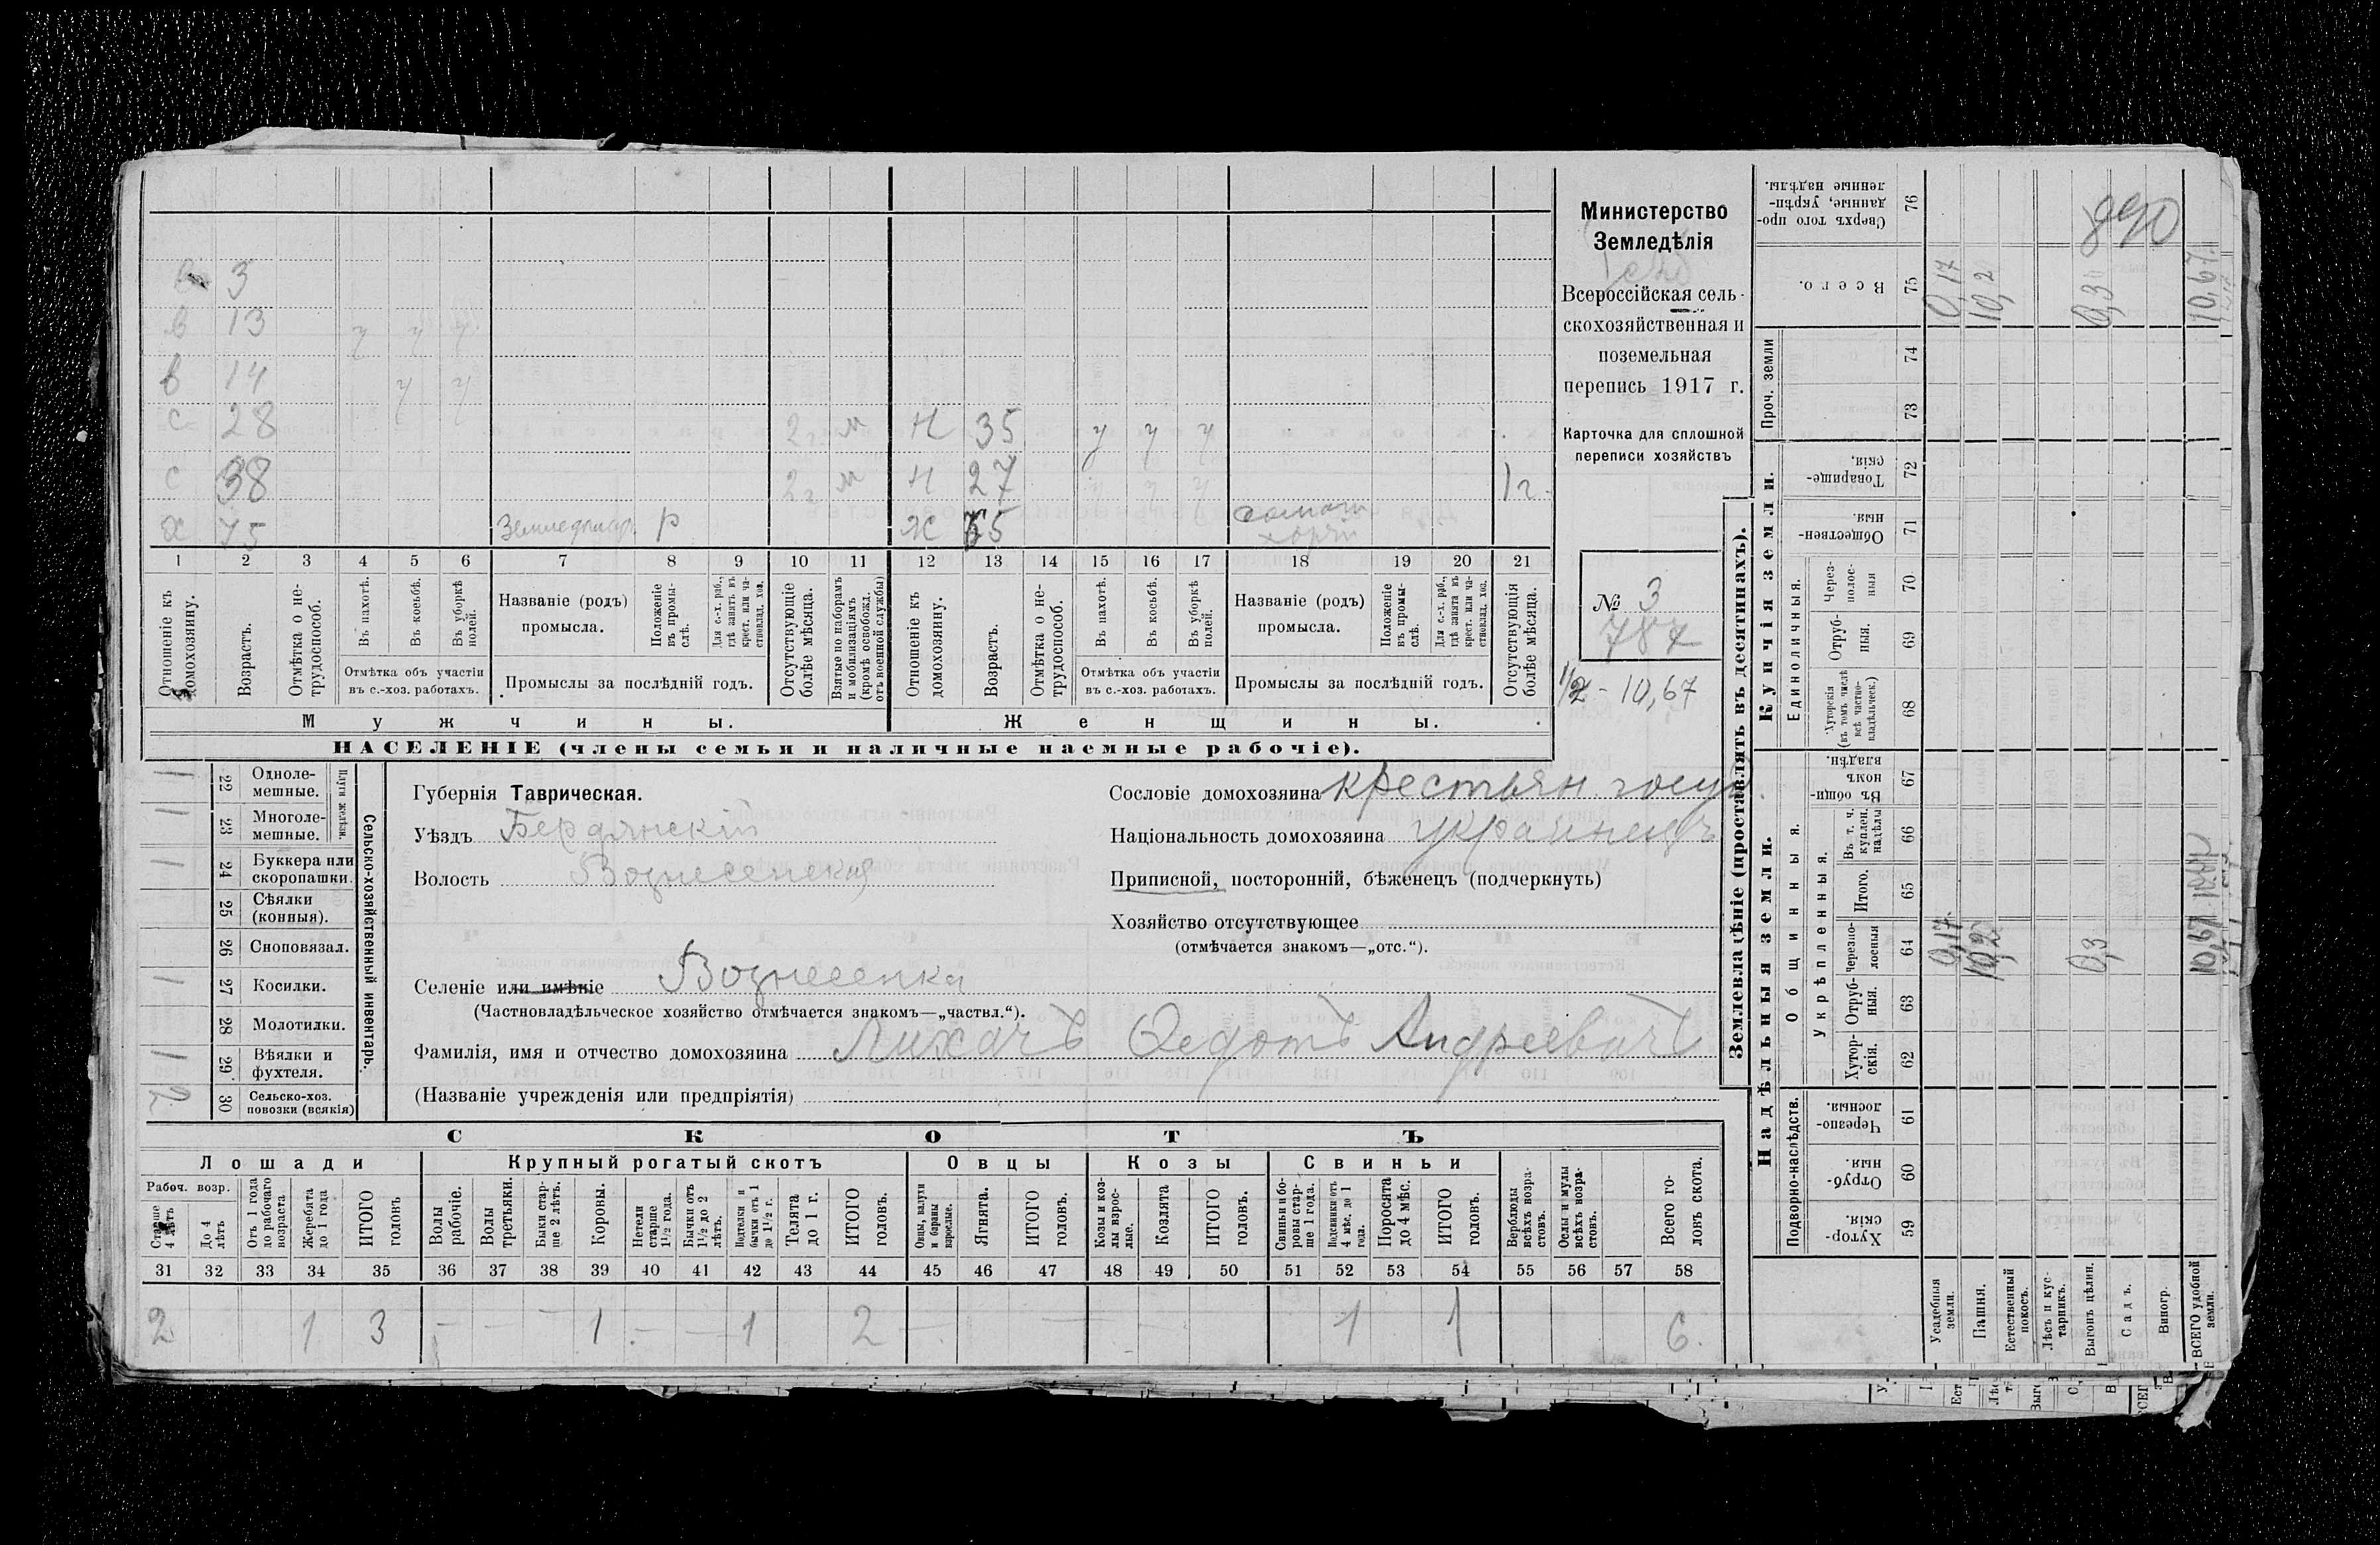 в 3
в 13 у у у
в 14 у у
с 28 2 г м Н 35 у у у
с 38 2 г м Н 27 у у у 1 г.
х 75 Р Ж 65
1 2 3 4 5 6 7 8 9 10 11 12 13 14 15 16 17 18 19 20 21
Отношеніе къ домохозяину.
Возрастъ.
Отмѣтка о не-
трудоспособ.
Въ пахотѣ.
Въ косьбѣ.
Въ уборкѣ
полей.
Отмѣтка объ участіи
въ с.-хоз. работахъ.
Названіе (родъ)
промысла.
Положеніе
въ промы-
слѣ.
Для с.-х. раб.,
гдѣ занятъ въ
крест. или ча-
стновлад. хоз.
Промыслы за послѣдній годъ.
Отсутствующіе
болѣе мѣсяца.
Взятые по наборамъ
и мобилизаціямъ
(кромѣ освобожд.
отъ военной службы)
Отношеніе къ
домохозяину.
Возрастъ.
Отмѣтка о не-
трудоспособ.
Въ пахотѣ.
Въ косьбѣ.
Въ уборкѣ
полей.
Отмѣтка объ участіи
въ с.-хоз. работахъ.
Названіе (родъ)
промысла.
Положеніе
въ промы-
слѣ.
Для с.-х. раб.,
гдѣ занята въ
крест. или ча-
стновлад. хоз.
Промыслы за послѣдній годъ.
Отсутствующія
болѣе мѣсяца.
Мужчины.
Женщины.
НАСЕЛЕНІЕ (члены семьи и наличные наемные рабочіе).
Министерство
Земледѣлія
Всероссійская сель-
скохозяйственная и
поземельная
перепись 1917 г.
Карточка для сплошной
переписи хозяйствъ
№ 3
787
1/2 - 10,67
Сельско-хозяйственный инвентарь.
Плуги желѣзн.
1 22 Одноле-
мешные.
1 23 Многоле-
мешные.
1 24 Буккера или
скоропашки.
25 Сѣялки
(конныя).
26 Сноповязал.
1 27 Косилки.
28 Молотилки.
1 29 Вѣялки и
фухтеля.
2 30 Сельско-хоз.
повозки (всякія)
Губернія Таврическая.
Уѣздъ Бердянскій
Волость Вознесенская
Селеніе или имѣніе Вознесенка
(Частновладѣльческое хозяйство отмѣчается знакомъ—„частвл.“).
Фамилія, имя и отчество домохозяина Лихачъ Федотъ Андреевичъ
(Названіе учрежденія или предпріятія)
Сословіе домохозяина крестьян. госуд
Національность домохозяина украинецъ
Приписной, посторонній, бѣженецъ (подчеркнуть)
Хозяйство отсутствующее
(отмѣчается знакомъ—„отс.“).
СКОТЪ
Лошади
Крупный рогатый скотъ
Овцы
Козы
Свиньи
Рабоч. возр.
Старше
4 лѣтъ
До 4
лѣтъ
Отъ 1 года
до рабочаго
возраста
Жеребята
до 1 года
ИТОГО
головъ
Волы
рабочіе.
Волы
третьяки.
Быки стар-
ше 2 лѣтъ.
Коровы.
Нетели
старше
1½ года.
Бычки отъ
1½ до 2
лѣтъ.
Подтелки и
бычки отъ 1
до 1½ г.
Телята
до 1 г.
ИТОГО
головъ.
Овцы, валухи
и бараны
взрослые.
Ягнята.
ИТОГО
головъ.
Козы и коз-
лы взрос-
лые.
Козлята
ИТОГО
головъ.
Свиньи и бо-
ровы стар-
ше 1 года.
Подсвинки отъ
4 мѣс. до 1
года.
Поросята
до 4 мѣс.
ИТОГО
головъ.
Верблюды
всѣхъ возра-
стовъ.
Ослы и мулы
всѣхъ возра-
стовъ.
Всего го-
ловъ скота.
31 32 33 34 35 36 37 38 39 40 41 42 43 44 45 46 47 48 49 50 51 52 53 54 55 56 57 58
2 1 3 — — — 1 — — 1 2 — — — 1 1 6.
Землевладѣніе (проставлять въ десятинахъ).
Надѣльныя земли.
Купчія земли.
Проч. земли
Подворно-наслѣдств.
Общинныя.
Укрѣпленныя.
Единоличныя.
Хутор-
скія. 59
Отруб-
ныя. 60
Черезпо-
лосныя. 61
Хутор-
скія. 62
Отруб-
ныя. 63
Черезпо-
лосныя 64
Итого. 65
Въ т. ч.
куплен.
надѣлы 66
Въ общи-
номъ
владѣн. 67
Хуторскія
(въ томъ числѣ
всѣ частно-
владѣльческ.) 68
Отруб-
ныя. 69
Через-
полос-
ныя 70
Обществен-
ныя. 71
Товарище-
скія. 72
73
74
Всего. 75
Сверхъ того про-
данные, укрѣп-
ленные надѣлы. 76
Усадебныя
земли.
Пашня.
Естественный
покосъ.
Лѣсъ и кус-
тарникъ.
Выгонъ цѣлин.
Садъ.
Виногр.
ВСЕГО удобной
земли.
0,17 10,2 0,3 10,67
0,17 10,2 0,3 10,67
890